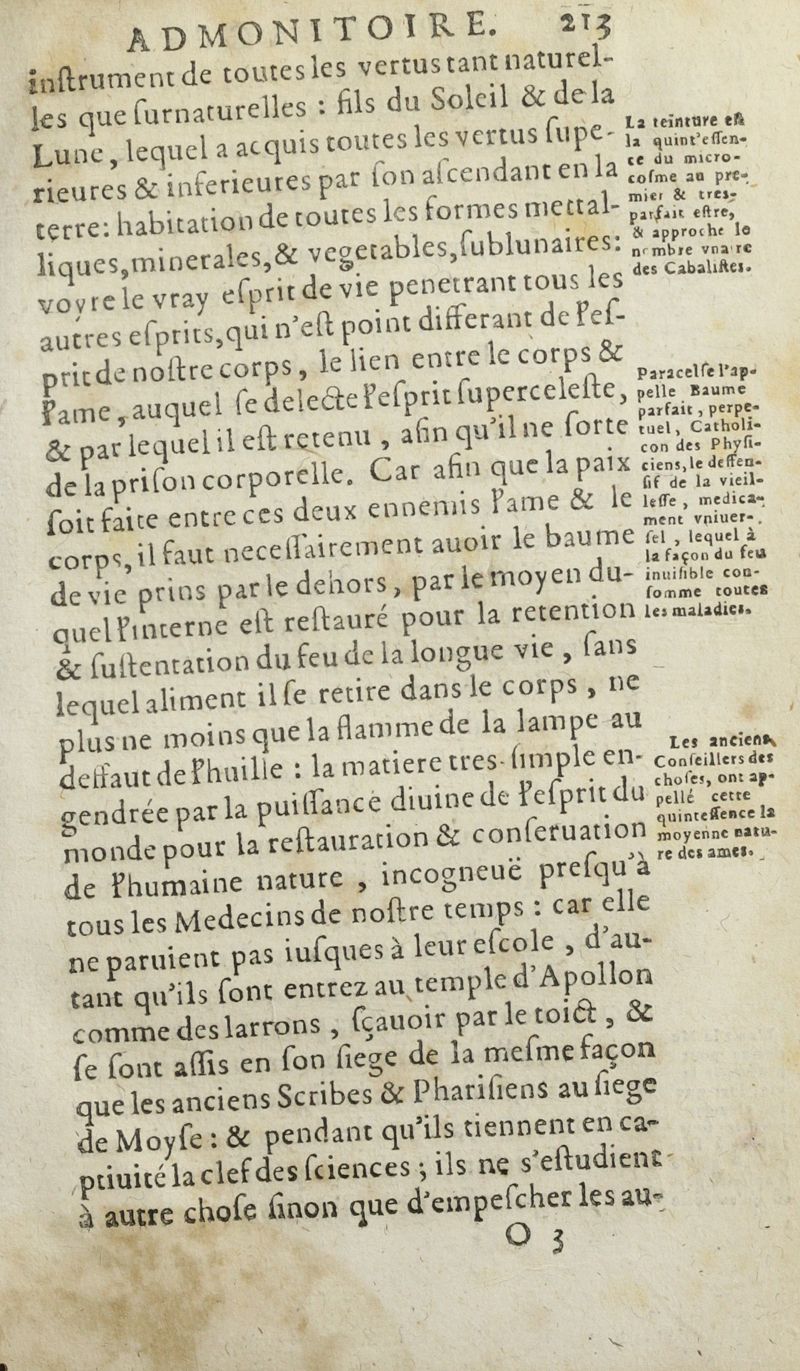 ADMONITOIRE. 213
inſtrument de toutes les vertus tant naturel-
les que ſurnaturelles : fils du Soleil & de la
Lune, lequel a acquis toutes les vertus ſupe-
rieures & inferieures par ſon aſcendant en la
terre: habitation de toutes les formes mettal-
liques, minerales, & vegetables, ſublunaires:
voyre le vray eſprit de vie penetrant tous les
autres eſprits, qui n'eſt point differant de l'eſ-
prit de noſtre corps, le lien entre le corps &
l'ame, auquel ſe delecte l'eſprit ſuperceleſte,
& par lequel il eſt retenu, afin qu'il ne ſorte
de la priſon corporelle. Car afin que la paix
ſoit faite entre ces deux ennemis l'ame & le
corps, il faut neceſſairement auoir le baume
de vie prins par le dehors, par le moyen du-
quel l'interne eſt reſtauré pour la retention
& ſuſtentation du feu de la longue vie, ſans
lequel aliment il ſe retire dans le corps, ne
plus ne moins que la flamme de la lampe au
deffaut de l'huille : la matiere tres-ſimple en-
gendrée par la puiſſance diuine de l'eſprit du
monde pour la reſtauration & conſeruation
de l'humaine nature, incogneuë preſqu'à
tous les Medecins de noſtre temps : car elle
ne paruient pas iuſques à leur eſcole, d'au-
tant qu'ils ſont entrez au temple d'Apollon
comme des larrons, ſçauoir par le toict, &
ſe ſont aſſis en ſon ſiege de la meſme façon
que les anciens Scribes & Phariſiens au ſiege
de Moyſe : & pendant qu'ils tiennent en ca-
ptiuité la clef des ſciences ; ils ne s'eſtudient
à autre choſe ſinon que d'empeſcher les au-
O 3
La teinture eſt
la quint'eſſen-
ce du micro-
coſme au pre-
mier & tres-
parfait eſtre,
& approche le
nombre vnaire
des Cabaliſtes.
Paracelſe l'ap-
pelle Baume
parfait, perpe-
tuel, Catholi-
con des Phyſi-
ciens, le deffen-
ſif de la vieil-
leſſe, medica-
ment vniuer-
ſel, lequel à
la façon du feu
inuiſible con-
ſomme toutes
les maladies.
Les anciens
conſeillers des
choſes, ont ap-
pellé cette
quinteſſence la
moyenne natu-
re des ames.